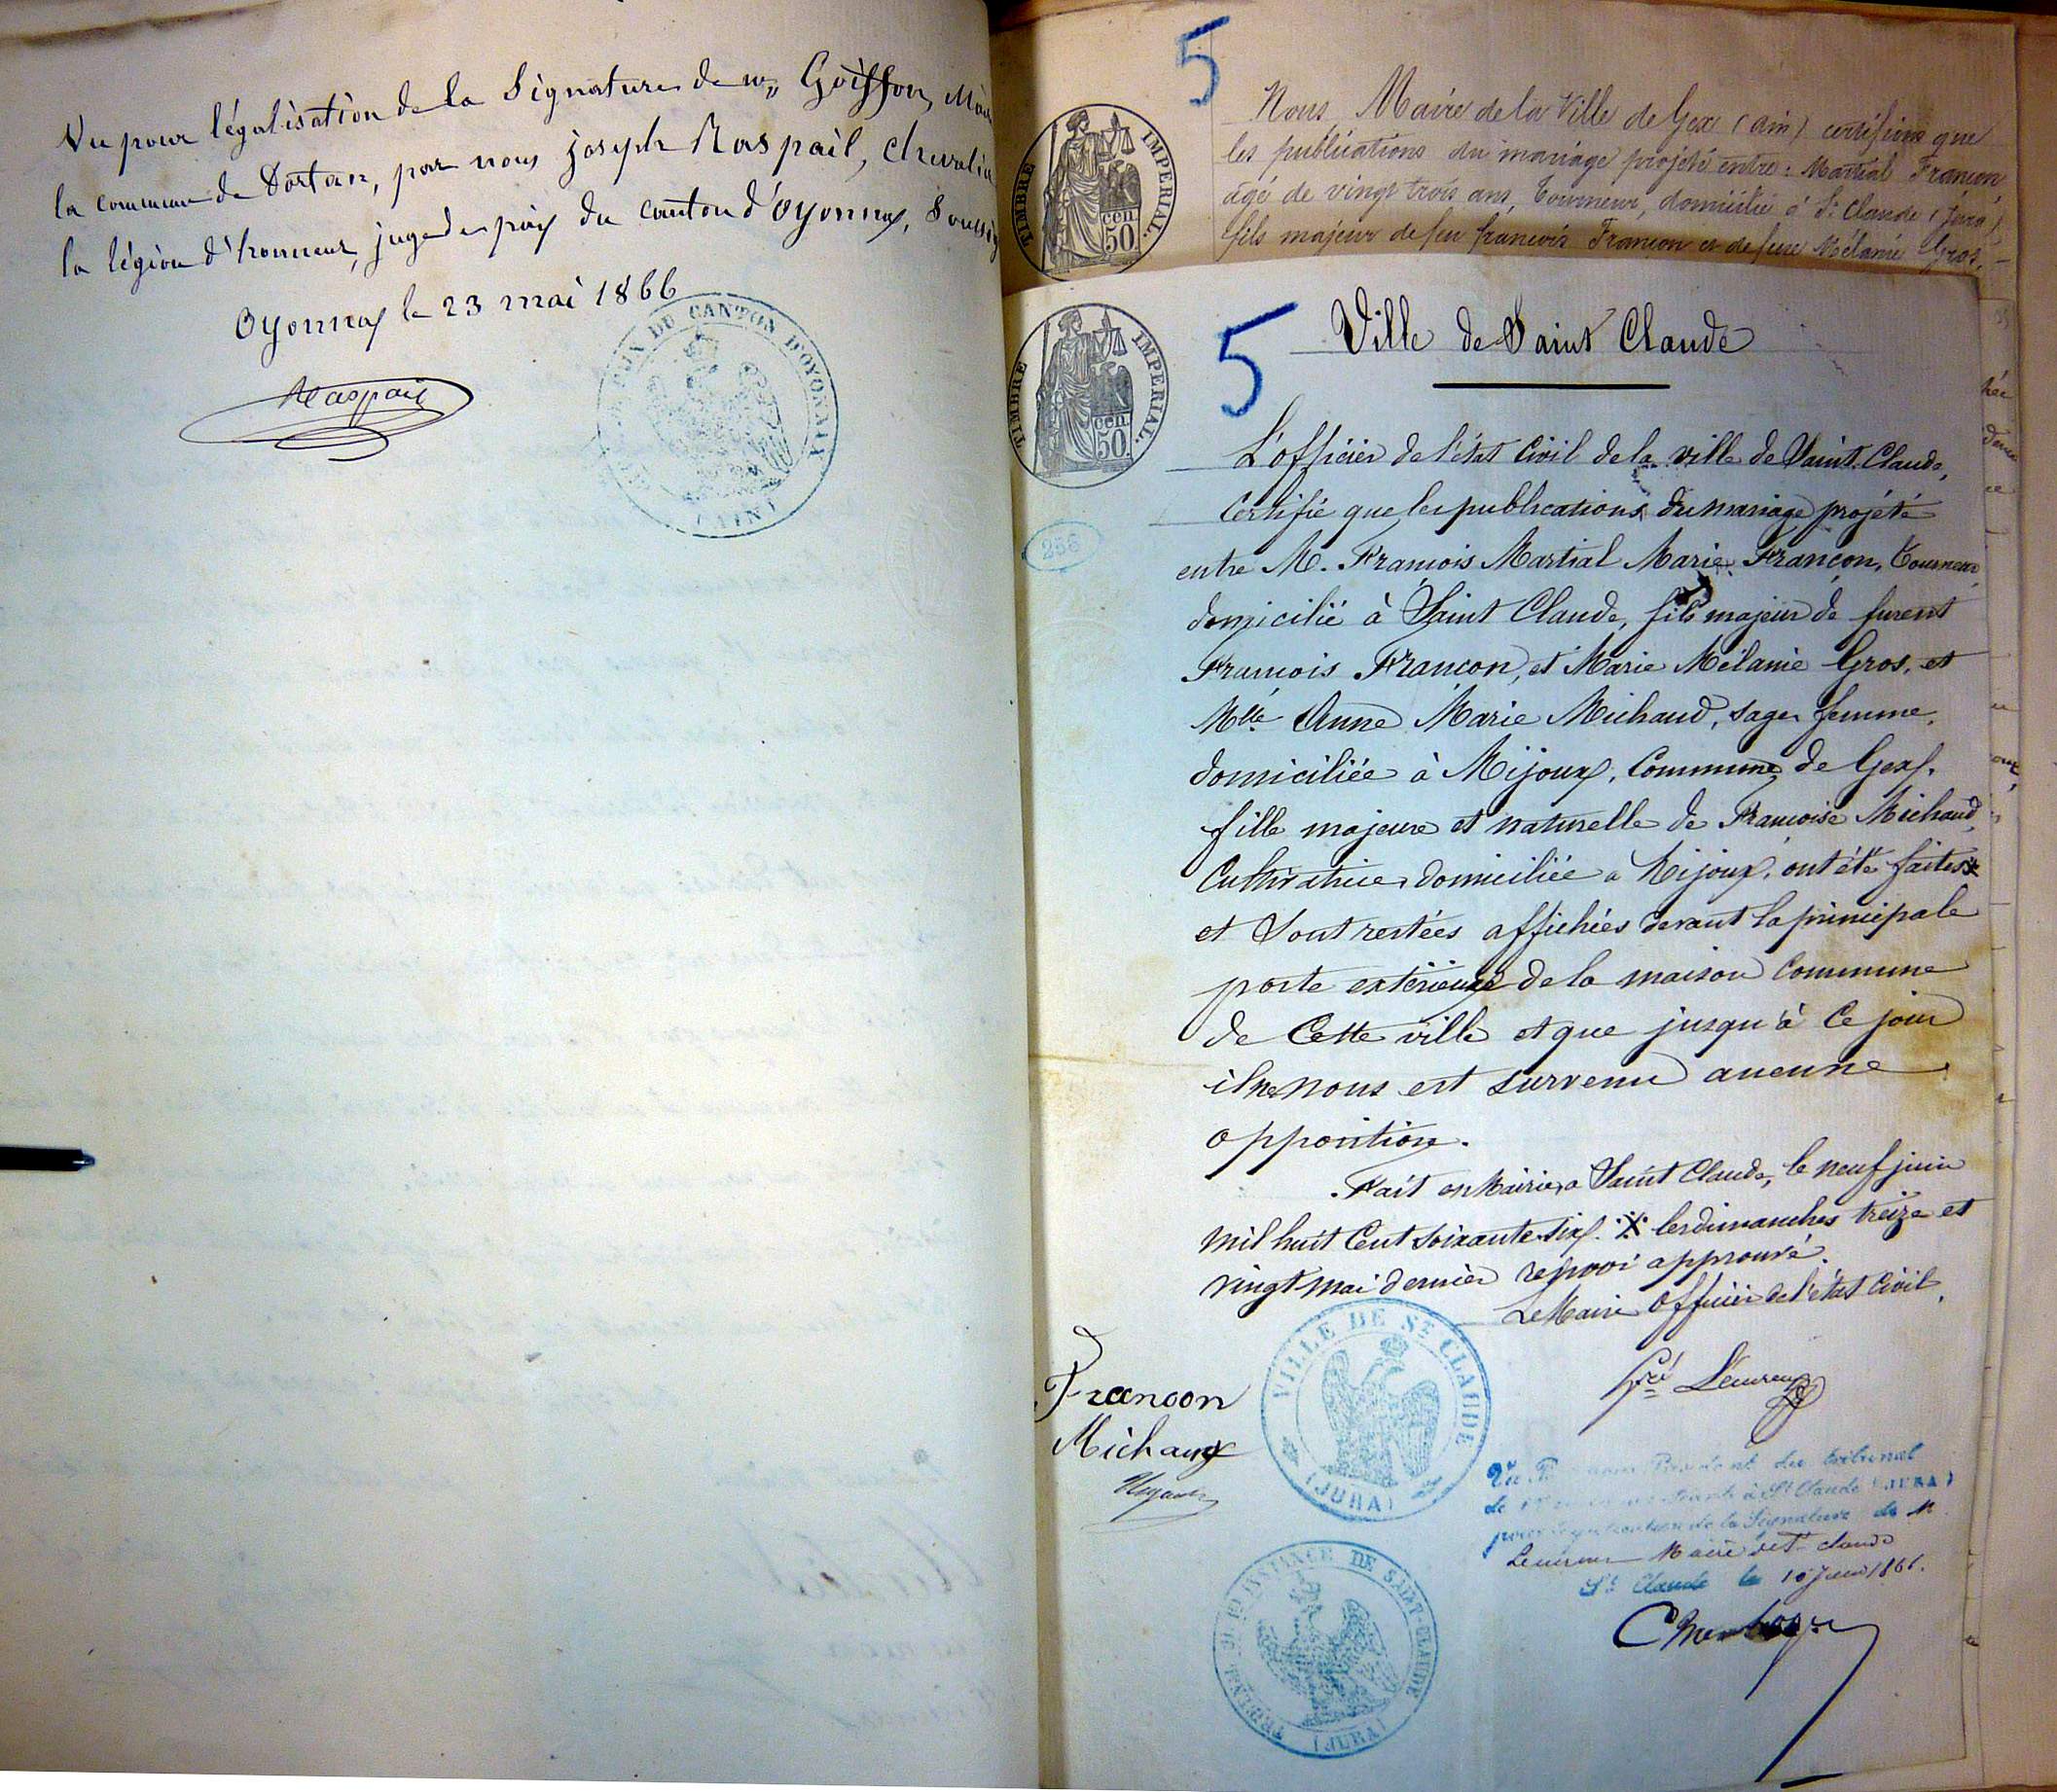 Vu pour légalisation de la Signature de mr Goiffon, Mair
la commune de Dortan, par nous joseph Raspail, chevalier
la légion d'honneur, juge de paix du canton d'Oyonnax, Soussig
Oyonnax le 23 mai 1866
Raspail
PAIX DU CANTON D'OYONNAX
(AIN)
5
TIMBRE IMPERIAL.
cen.
50.
Nous, Maire de la Ville de Gex (ain) certifions que
les publications du mariage projété entre : Martial Françon
agé de vingt trois ans, Tourneur, domicilié à St Claude (Jura)
fils majeur de feu françois Françon et de feue Mélanie Gros,
TIMBRE IMPERIAL.
cen.
50.
5
Ville de Saint Claude
L'officier de l'état Civil de la ville de Saint-Claude,
Certifie que les publications du mariage projété
256
entre M. François Martial Marie Françon, Tourneur,
domicilié à Saint Claude, fils majeur de furent
François Françon, et Marie Mélanie Gros, et
Mlle Anne Marie Michaud, sage femme,
domiciliée à Mijoux, Commune de Gex,
fille majeure et naturelle de Françoise Michaud,
Cultivatrice domiciliée a Mijoux, ont été faites
et Sont restées affichées devant la principale
porte extérieure de la maison Commune
de Cette ville et que jusqu'à Ce jour
il ne nous est survenu aucune
opposition.
Fait en Mairie, a Saint Claude, le neuf juin
mil huit Cent soixante-six. les dimanches treize et
vingt mai dernier renvoi approuvé.
Le Maire Officier de l'état Civil,
Françon
Michaud
VILLE DE ST CLAUDE
(JURA)
Président du tribunal
de à St Claude (JURA)
pour légalisation de la Signature de M.
Maire de St Claude
St Claude le 10 Juin 1866.
TRIBUNAL DE 1re INSTANCE DE SAINT-CLAUDE
(JURA)